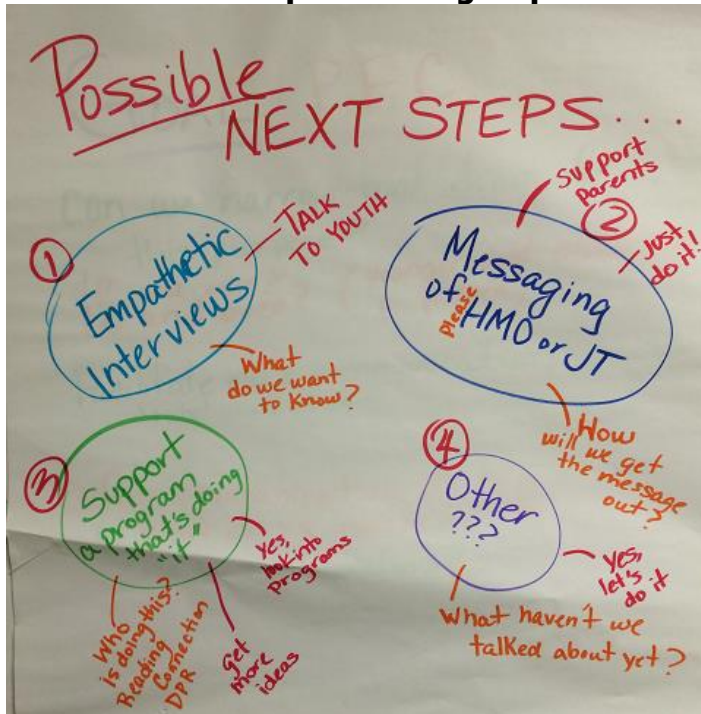 Possible
NEXT STEPS...
①
Empathetic
Interviews
TALK
TO YOUTH
What
do we want
to know?
②
Messaging
of HMO or JT
Please
Support
Parents
Just
do it!
How
will we get
the message
out?
③
Support
a program
that's doing
"it"
Yes,
look into
programs
Get
more
ideas
Who
is doing this?
Reading
Connection
DPR
④
Other
???
Yes,
let's
do it
What haven't we
talked about yet?